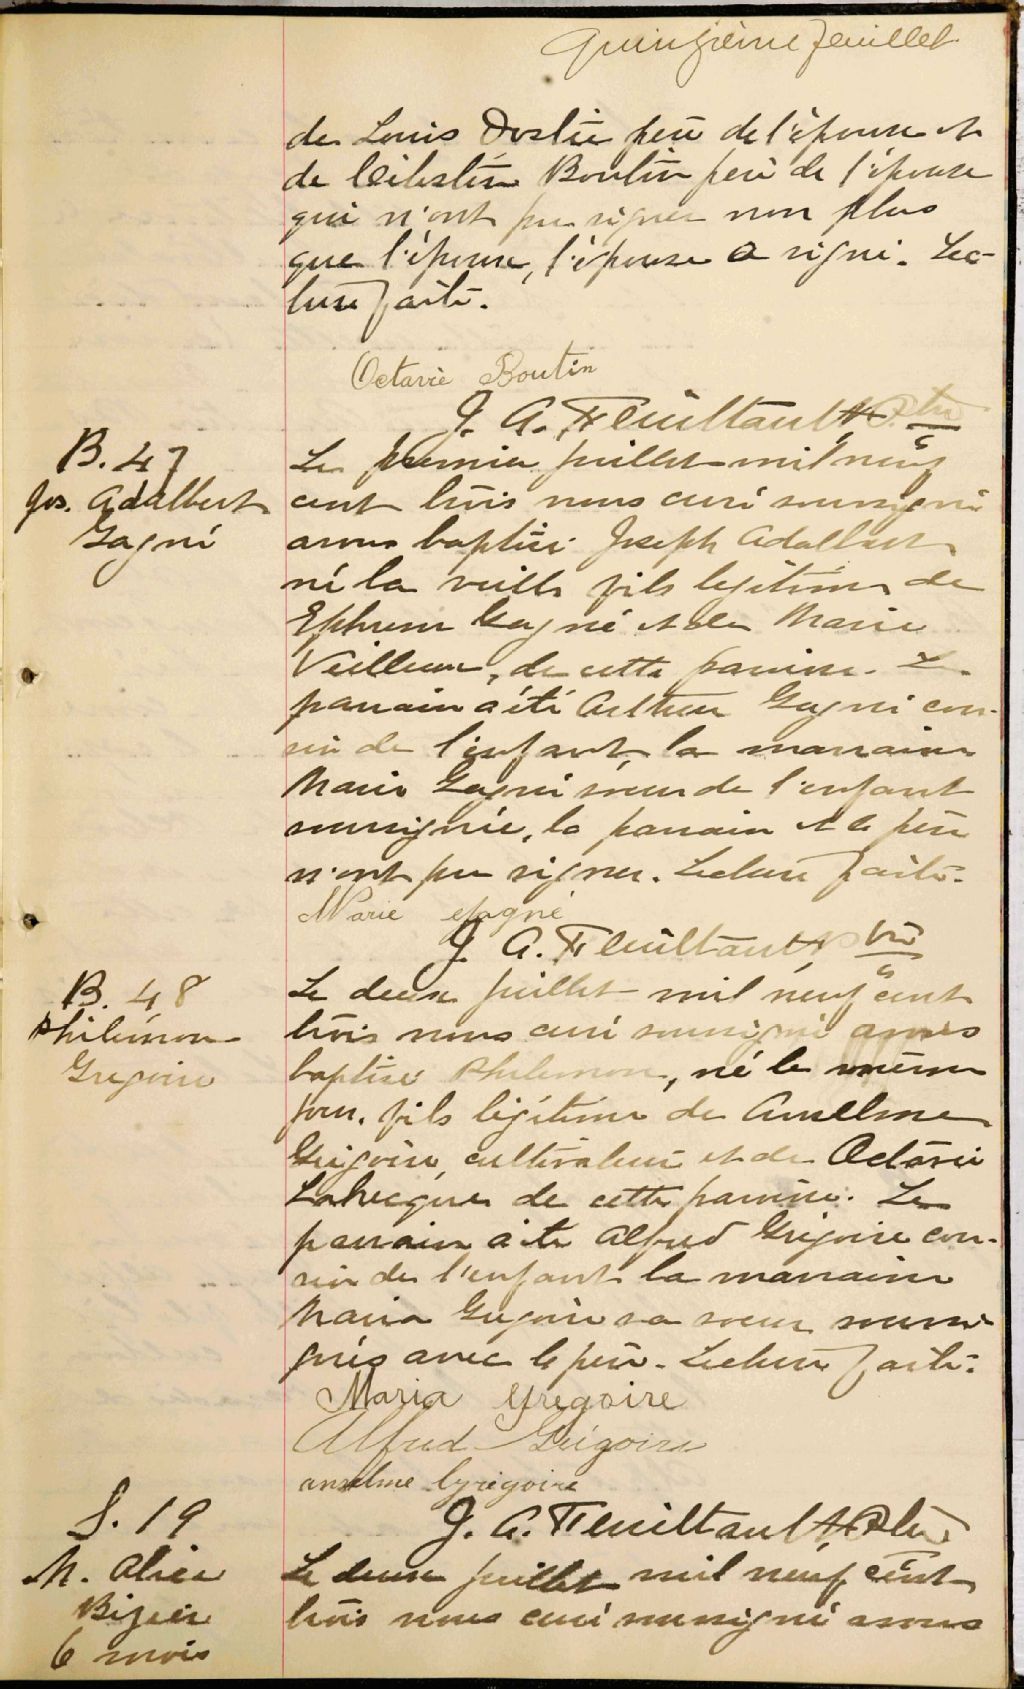 Quinzième feuillet
de Louis Doslie père de l'épouse et
de Célestin Boutin père de l'épouse
qui n'ont pu signer non plus
que l'époux, l'épouse a signé. Lec-
ture faite.
Octavie Boutin
J. A. Feuiltault Ptre
B. 47
Jos. Adalbert
Gagné
Le premier juillet mil neuf
cent trois nous curé soussigné
avons baptisé Joseph Adalbert
né la veille fils légitime de
Ephrem Gagné et de Marie
Veilleux, de cette paroisse. Le
parrain a été Arthur Gagné cou-
sin de l'enfant la marraine
Marie Gagné soeur de l'enfant
soussignée, le parrain et le père
n'ont pu signer. Lecture faite.
Marie Gagné
J. A. Feuiltault Ptre
B. 48
Philémon
Gregoire
Le deux juillet mil neuf cent
trois nous curé soussigné avons
baptisé Philemon, né le même
jour, fils légitime de Anselme
Grégoire, cultivateur et de Octavie
Labrecque de cette paroisse. Le
parrain a été Alfred Grégoire cou-
sin de l'enfant la marraine
Maria Gregoire sa soeur soussi-
gnés avec le père. Lecture faite.
Maria Gregoire
Alfred Grégoire
anselme Grégoire
J. A. Feuiltault Ptre
S. 19
M. Alice
Bizier
6 mois
Le deux juillet mil neuf cent
trois nous curé soussigné avons